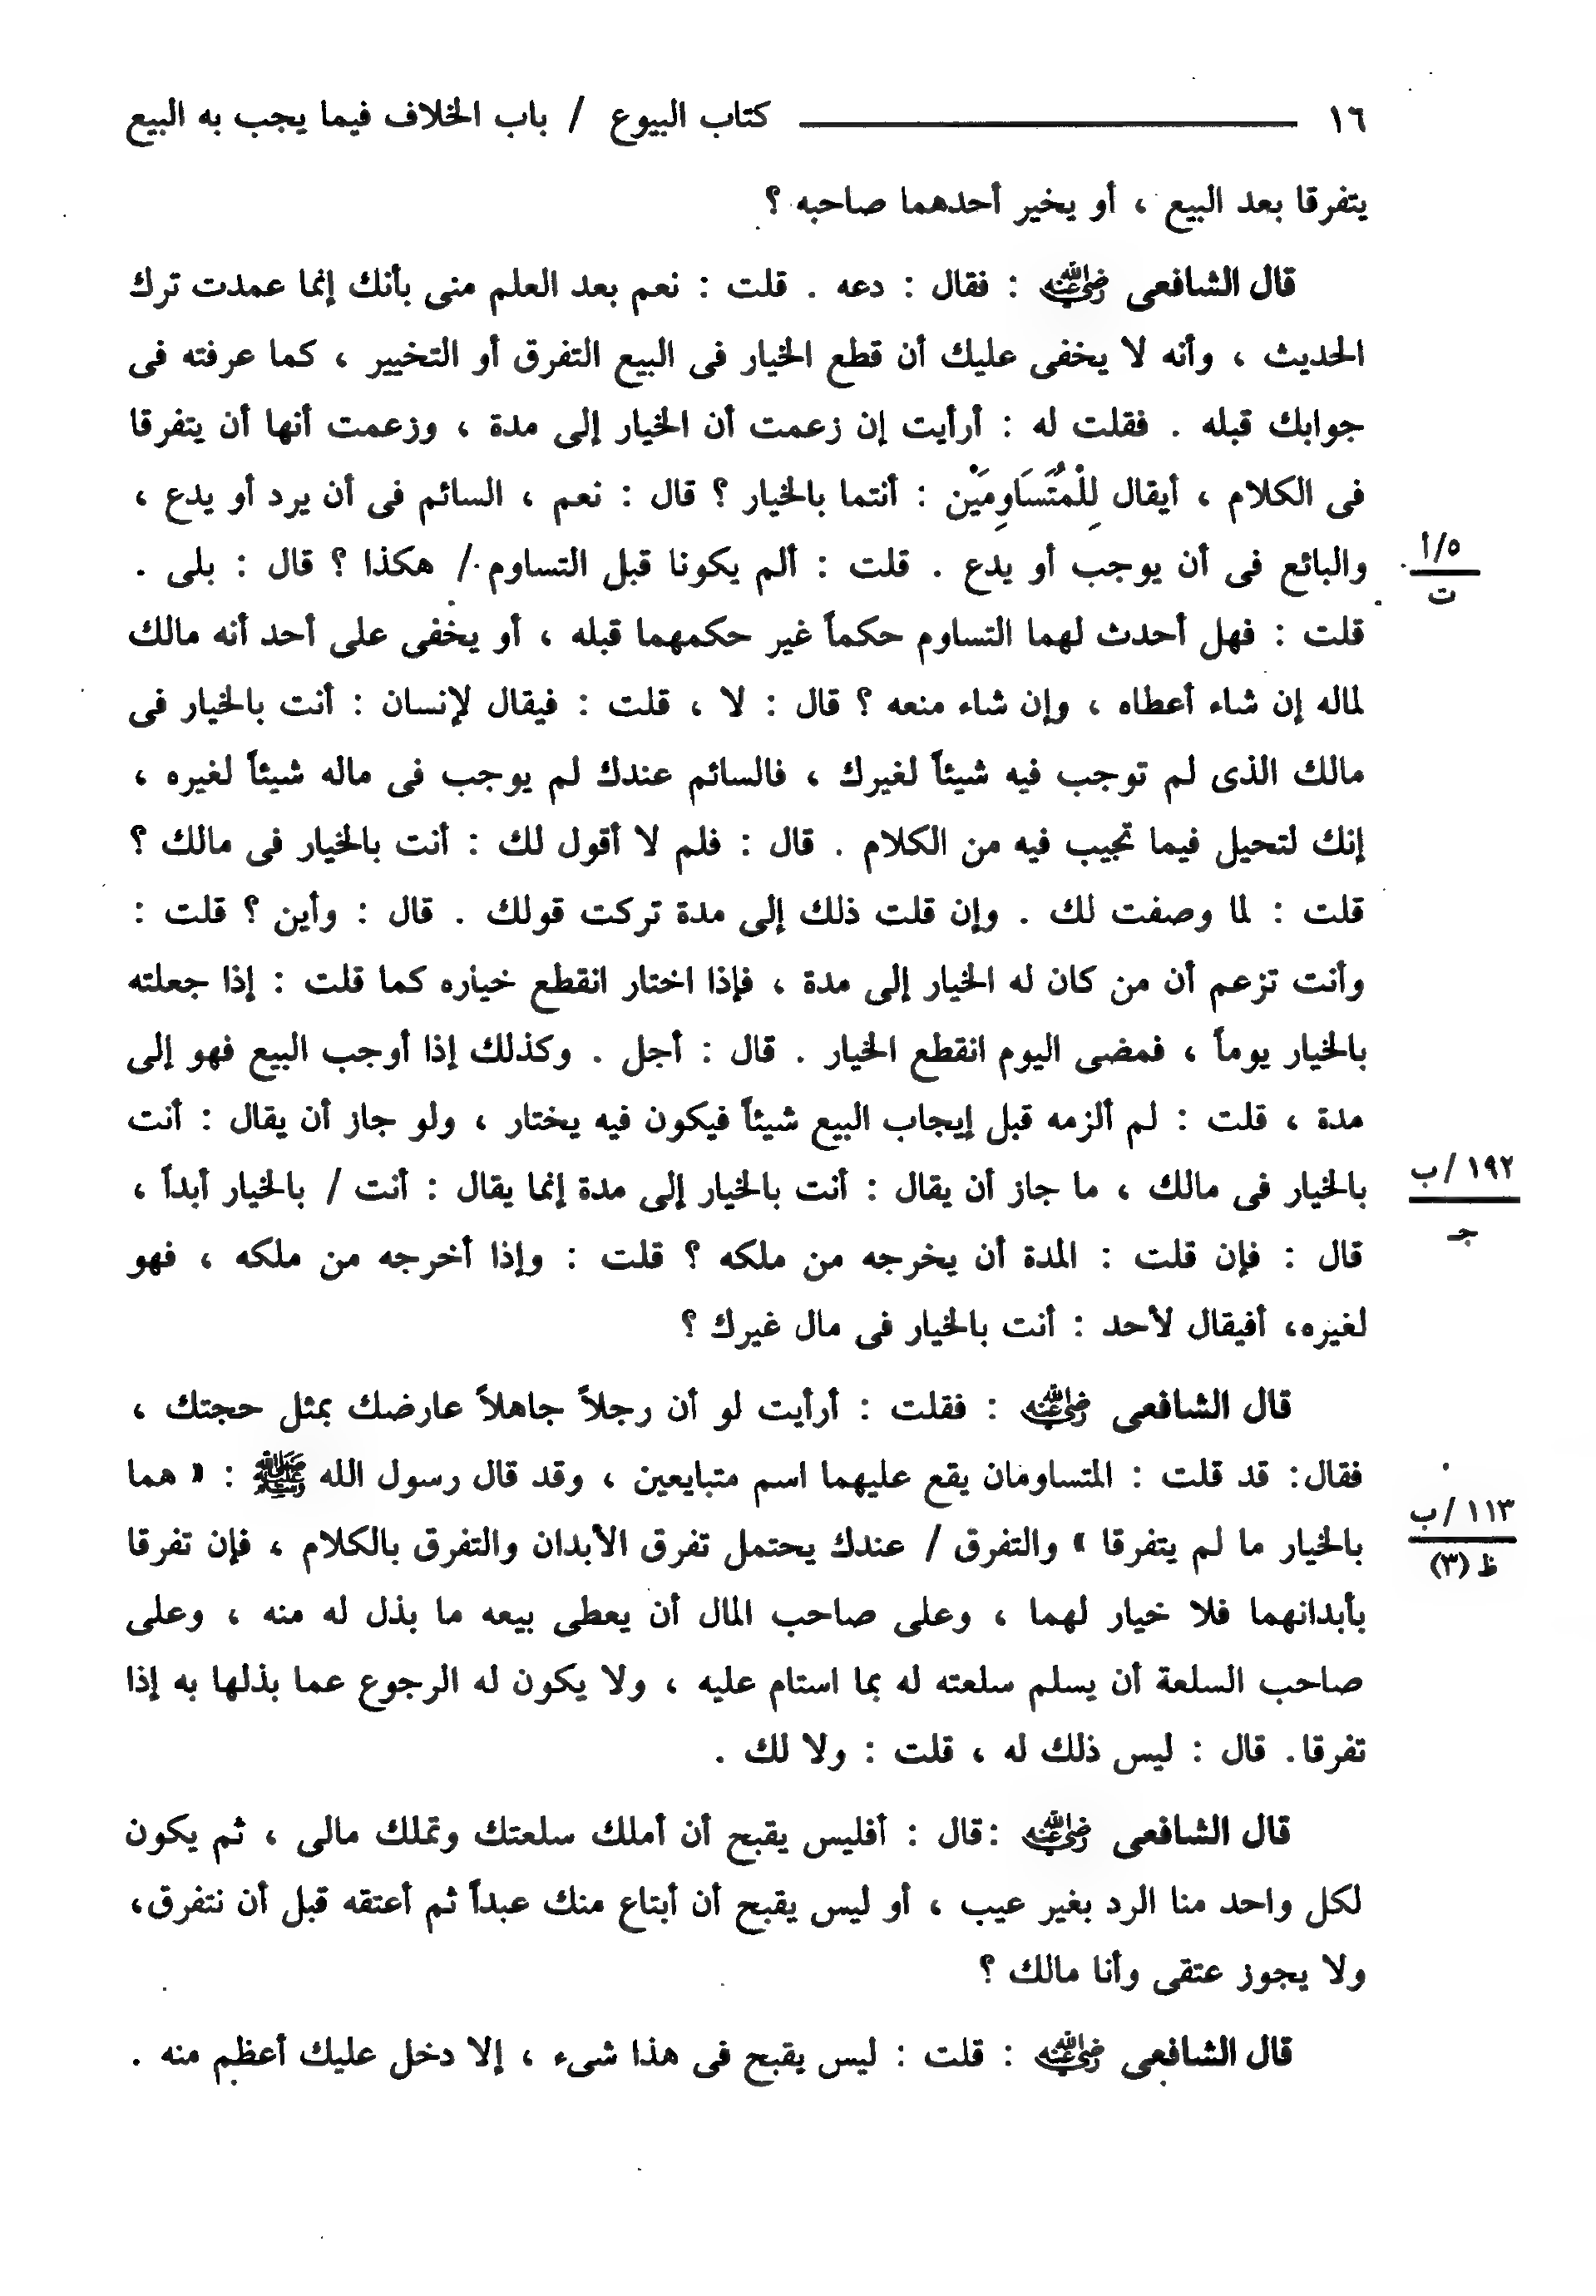 ١٦ كتاب البيوع / باب الخلاف فيما يجب به البيع
يتفرقا بعد البيع ، أو يخير أحدهما صاحبه ؟
قال الشافعى رضي الله عنه : فقال : دعه . قلت : نعم بعد العلم منى بأنك إنما عمدت ترك
الحديث ، وأنه لا يخفى عليك أن قطع الخيار فى البيع التفرق أو التخيير ، كما عرفته فى
جوابك قبله . فقلت له : أرأيت إن زعمت أن الخيار إلى مدة ، وزعمت أنها أن يتفرقا
فى الكلام ، أيقال لِلْمُتَسَاوِمَيْن : أنتما بالخيار ؟ قال : نعم ، السائم فى أن يرد أو يدع ،
والبائع فى أن يوجب أو يدع . قلت : ألم يكونا قبل التساوم / هكذا ؟ قال : بلى .
٥/أ
ت
قلت : فهل أحدث لهما التساوم حكماً غير حكمهما قبله ، أو يخفى على أحد أنه مالك
لماله إن شاء أعطاه ، وإن شاء منعه ؟ قال : لا ، قلت : فيقال لإنسان : أنت بالخيار فى
مالك الذى لم توجب فيه شيئاً لغيرك ، فالسائم عندك لم يوجب فى ماله شيئاً لغيره ،
إنك لتحيل فيما تجيب فيه من الكلام . قال : فلم لا أقول لك : أنت بالخيار فى مالك ؟
قلت : لما وصفت لك . وإن قلت ذلك إلى مدة تركت قولك . قال : وأين ؟ قلت :
وأنت تزعم أن من كان له الخيار إلى مدة ، فإذا اختار انقطع خياره كما قلت : إذا جعلته
بالخيار يوماً ، فمضى اليوم انقطع الخيار . قال : أجل . وكذلك إذا أوجب البيع فهو إلى
مدة ، قلت : لم ألزمه قبل إيجاب البيع شيئاً فيكون فيه يختار ، ولو جاز أن يقال : أنت
بالخيار فى مالك ، ما جاز أن يقال : أنت بالخيار إلى مدة إنما يقال : أنت / بالخيار أبداً ،
١٩٢/ب
جـ
قال : فإن قلت : المدة أن يخرجه من ملكه ؟ قلت : وإذا أخرجه من ملكه ، فهو
لغيره، أفيقال لأحد : أنت بالخيار فى مال غيرك ؟
قال الشافعى رضي الله عنه : فقلت : أرأيت لو أن رجلاً جاهلاً عارضك بمثل حجتك ،
فقال: قد قلت : المتساومان يقع عليهما اسم متبايعين ، وقد قال رسول الله ﷺ : « هما
بالخيار ما لم يتفرقا » والتفرق / عندك يحتمل تفرق الأبدان والتفرق بالكلام ، فإن تفرقا
١١٣/ب
ظ (٣)
بأبدانهما فلا خيار لهما ، وعلى صاحب المال أن يعطى بيعه ما بذل له منه ، وعلى
صاحب السلعة أن يسلم سلعته له بما استام عليه ، ولا يكون له الرجوع عما بذلها به إذا
تفرقا. قال : ليس ذلك له ، قلت : ولا لك .
قال الشافعى رضي الله عنه :قال : أفليس يقبح أن أملك سلعتك وتملك مالى ، ثم يكون
لكل واحد منا الرد بغير عيب ، أو ليس يقبح أن أبتاع منك عبداً ثم أعتقه قبل أن نتفرق،
ولا يجوز عتقى وأنا مالك ؟
قال الشافعى رضي الله عنه : قلت : ليس يقبح فى هذا شىء ، إلا دخل عليك أعظم منه .